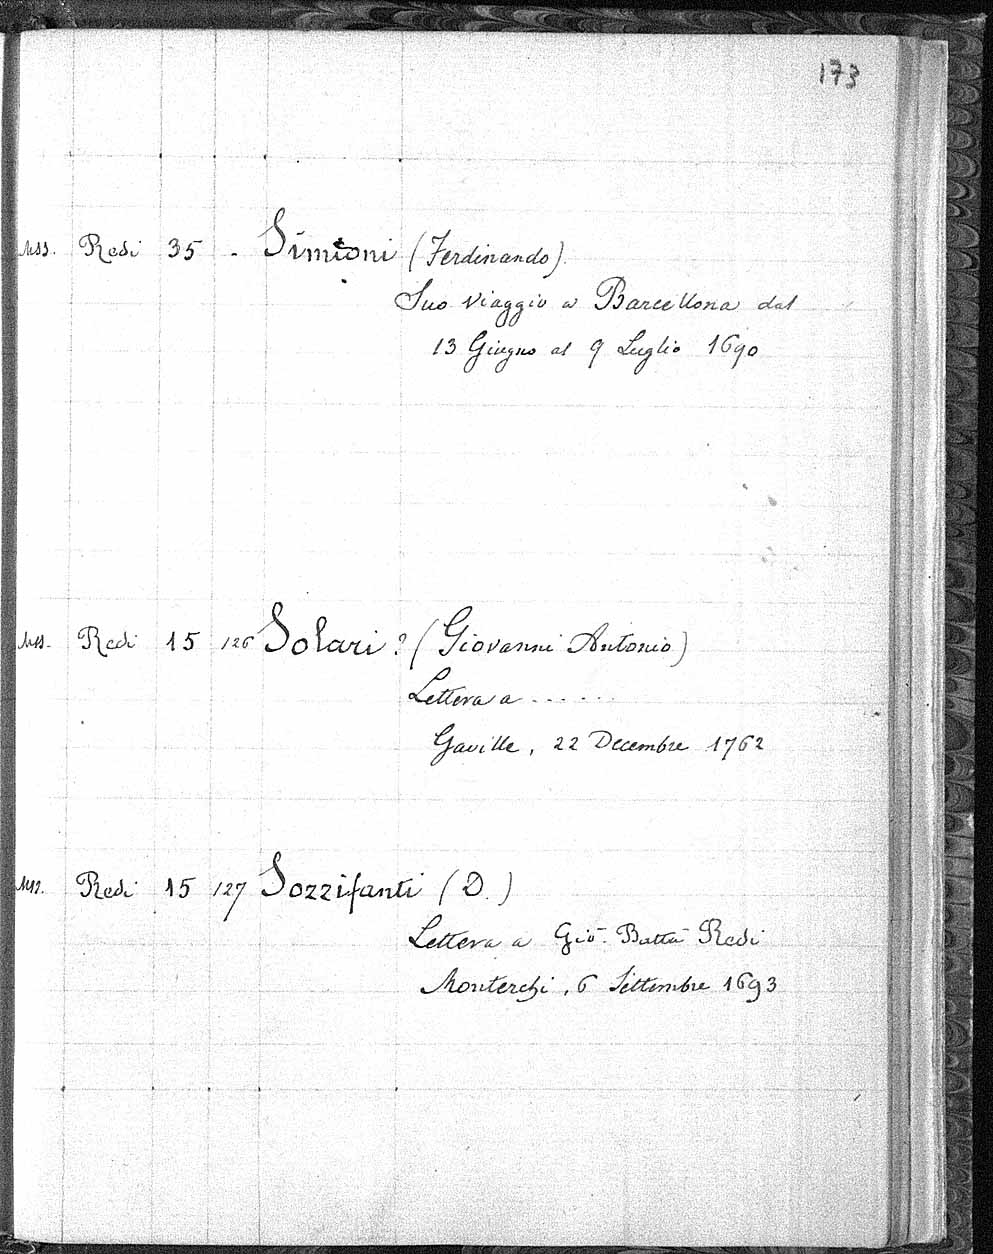 173
Mss. Redi 35 - Simioni (Ferdinando).
Suo viaggio a Barcellona dal
13 Giugno al 9 Luglio 1690
Mss. Redi 15 126 Solari? (Giovanni Antonio)
Lettera a ......
Gaville, 22 Decembre 1762
Mss. Redi 15 127 Sozzifanti (D.)
Lettera a Gio. Batta Redi
Monterchi, 6 Settembre 1693